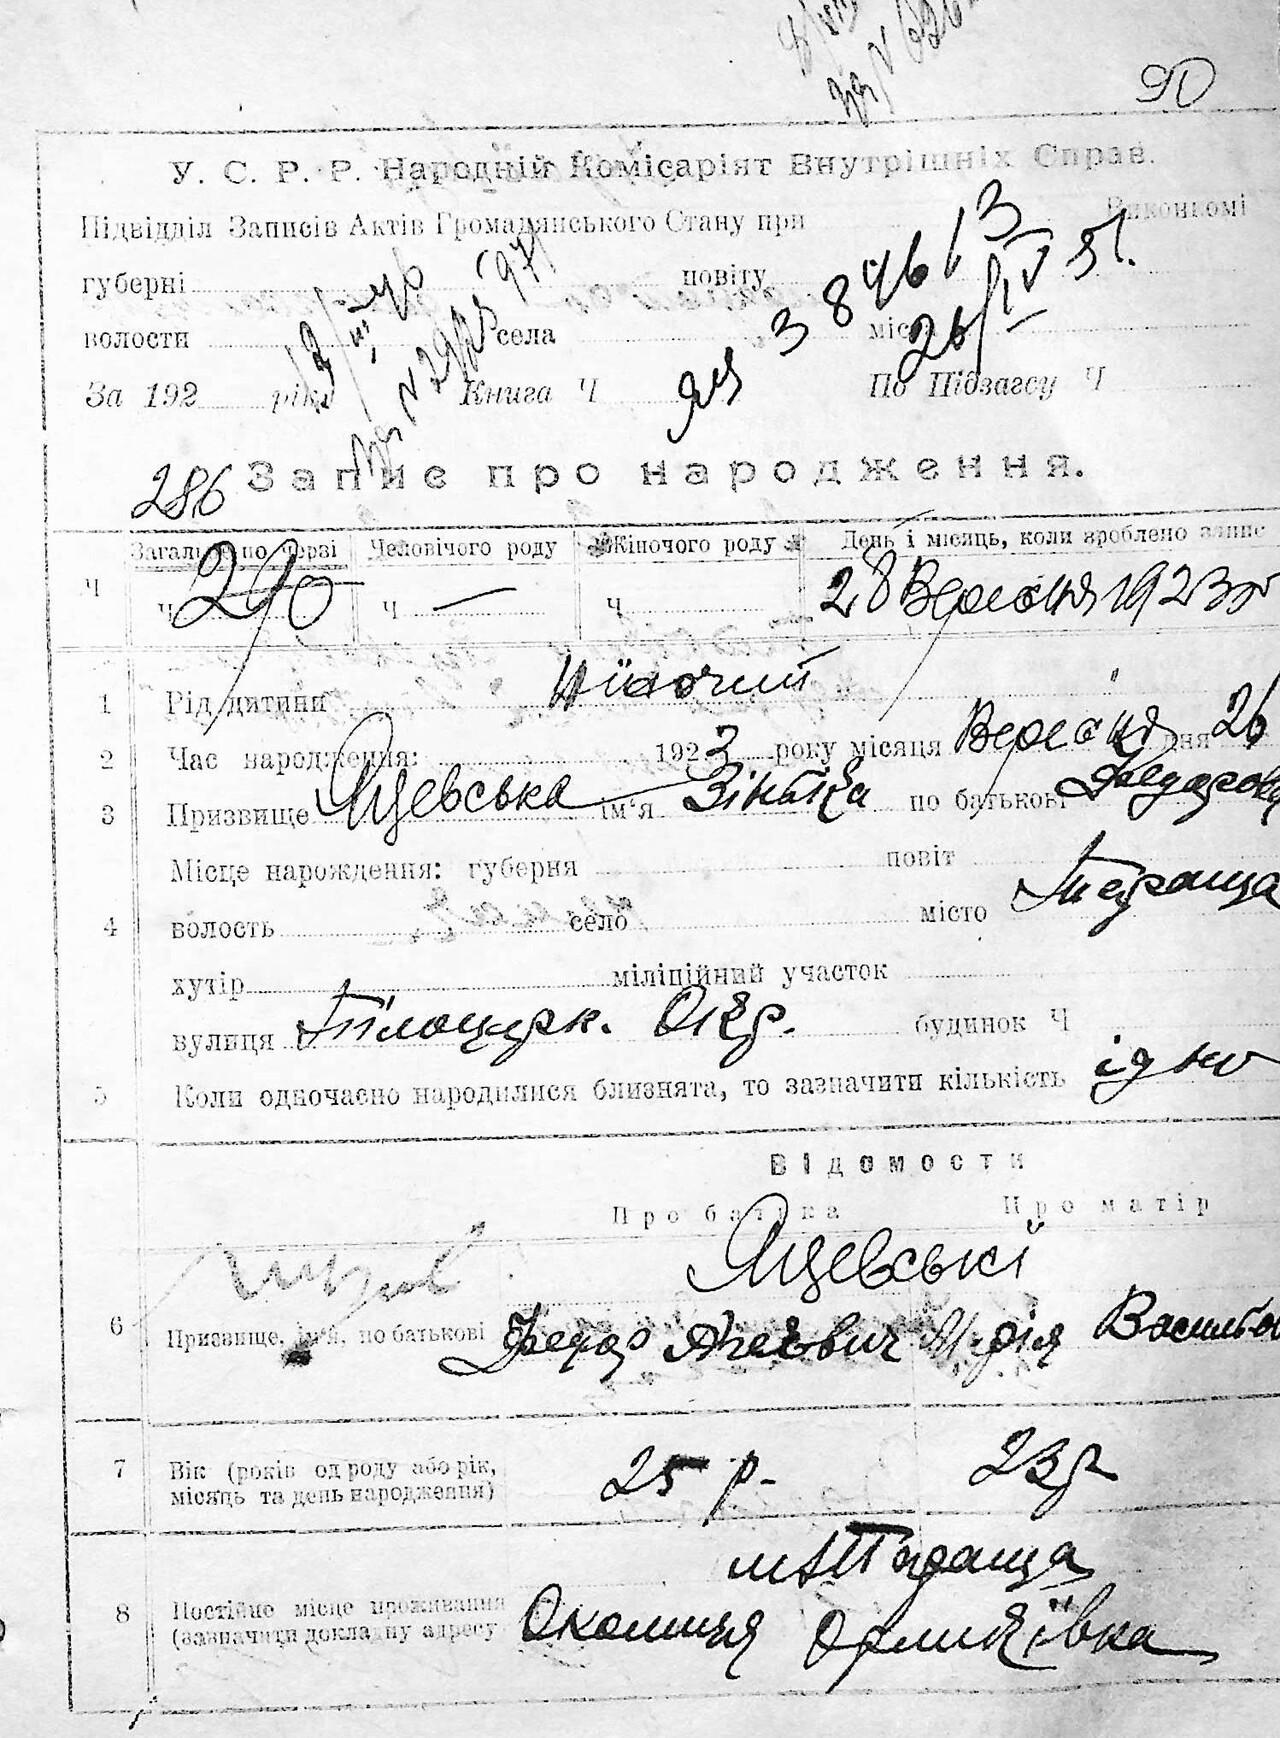 90
У. С. Р. Р. Народній Комісаріят Внутрішніх Справ.
Підвідділ Записів Актів Громадянського Стану при Виконкомі
губерні повіту
волости села міста
За 192 року Книга Ч По Підзагсу Ч
яз 384613
26/IV 51.
286 Запис про народження.
Загальне по черзі Чоловічого роду Жіночого роду День і місяць, коли зроблено запис
Ч Ч 290 Ч — Ч 28 Вересня 1923 р
1 Рід дитини Жіночий
2 Час народження: 1923 року місяця Вересня дня 26
3 Призвище Яцевська ім'я Зінька по батькові Федоров
Місце нарождення: губерня повіт
4 волость село місто Тараща
хутір міліційний участок
вулиця Білоцерк. Окр. будинок Ч
5 Коли одночасно народилися близнята, то зазначити кількість одно
Відомости
Про батька Про матір
Яцевські
6 Призвище, ім'я, по батькові Федор Марія Васильов
7 Вік (років од роду або рік, 25 р. 23 р
місяць та день народження)
м. Тараща
8 Постійне місце проживання Околиця
(зазначити докладну адресу